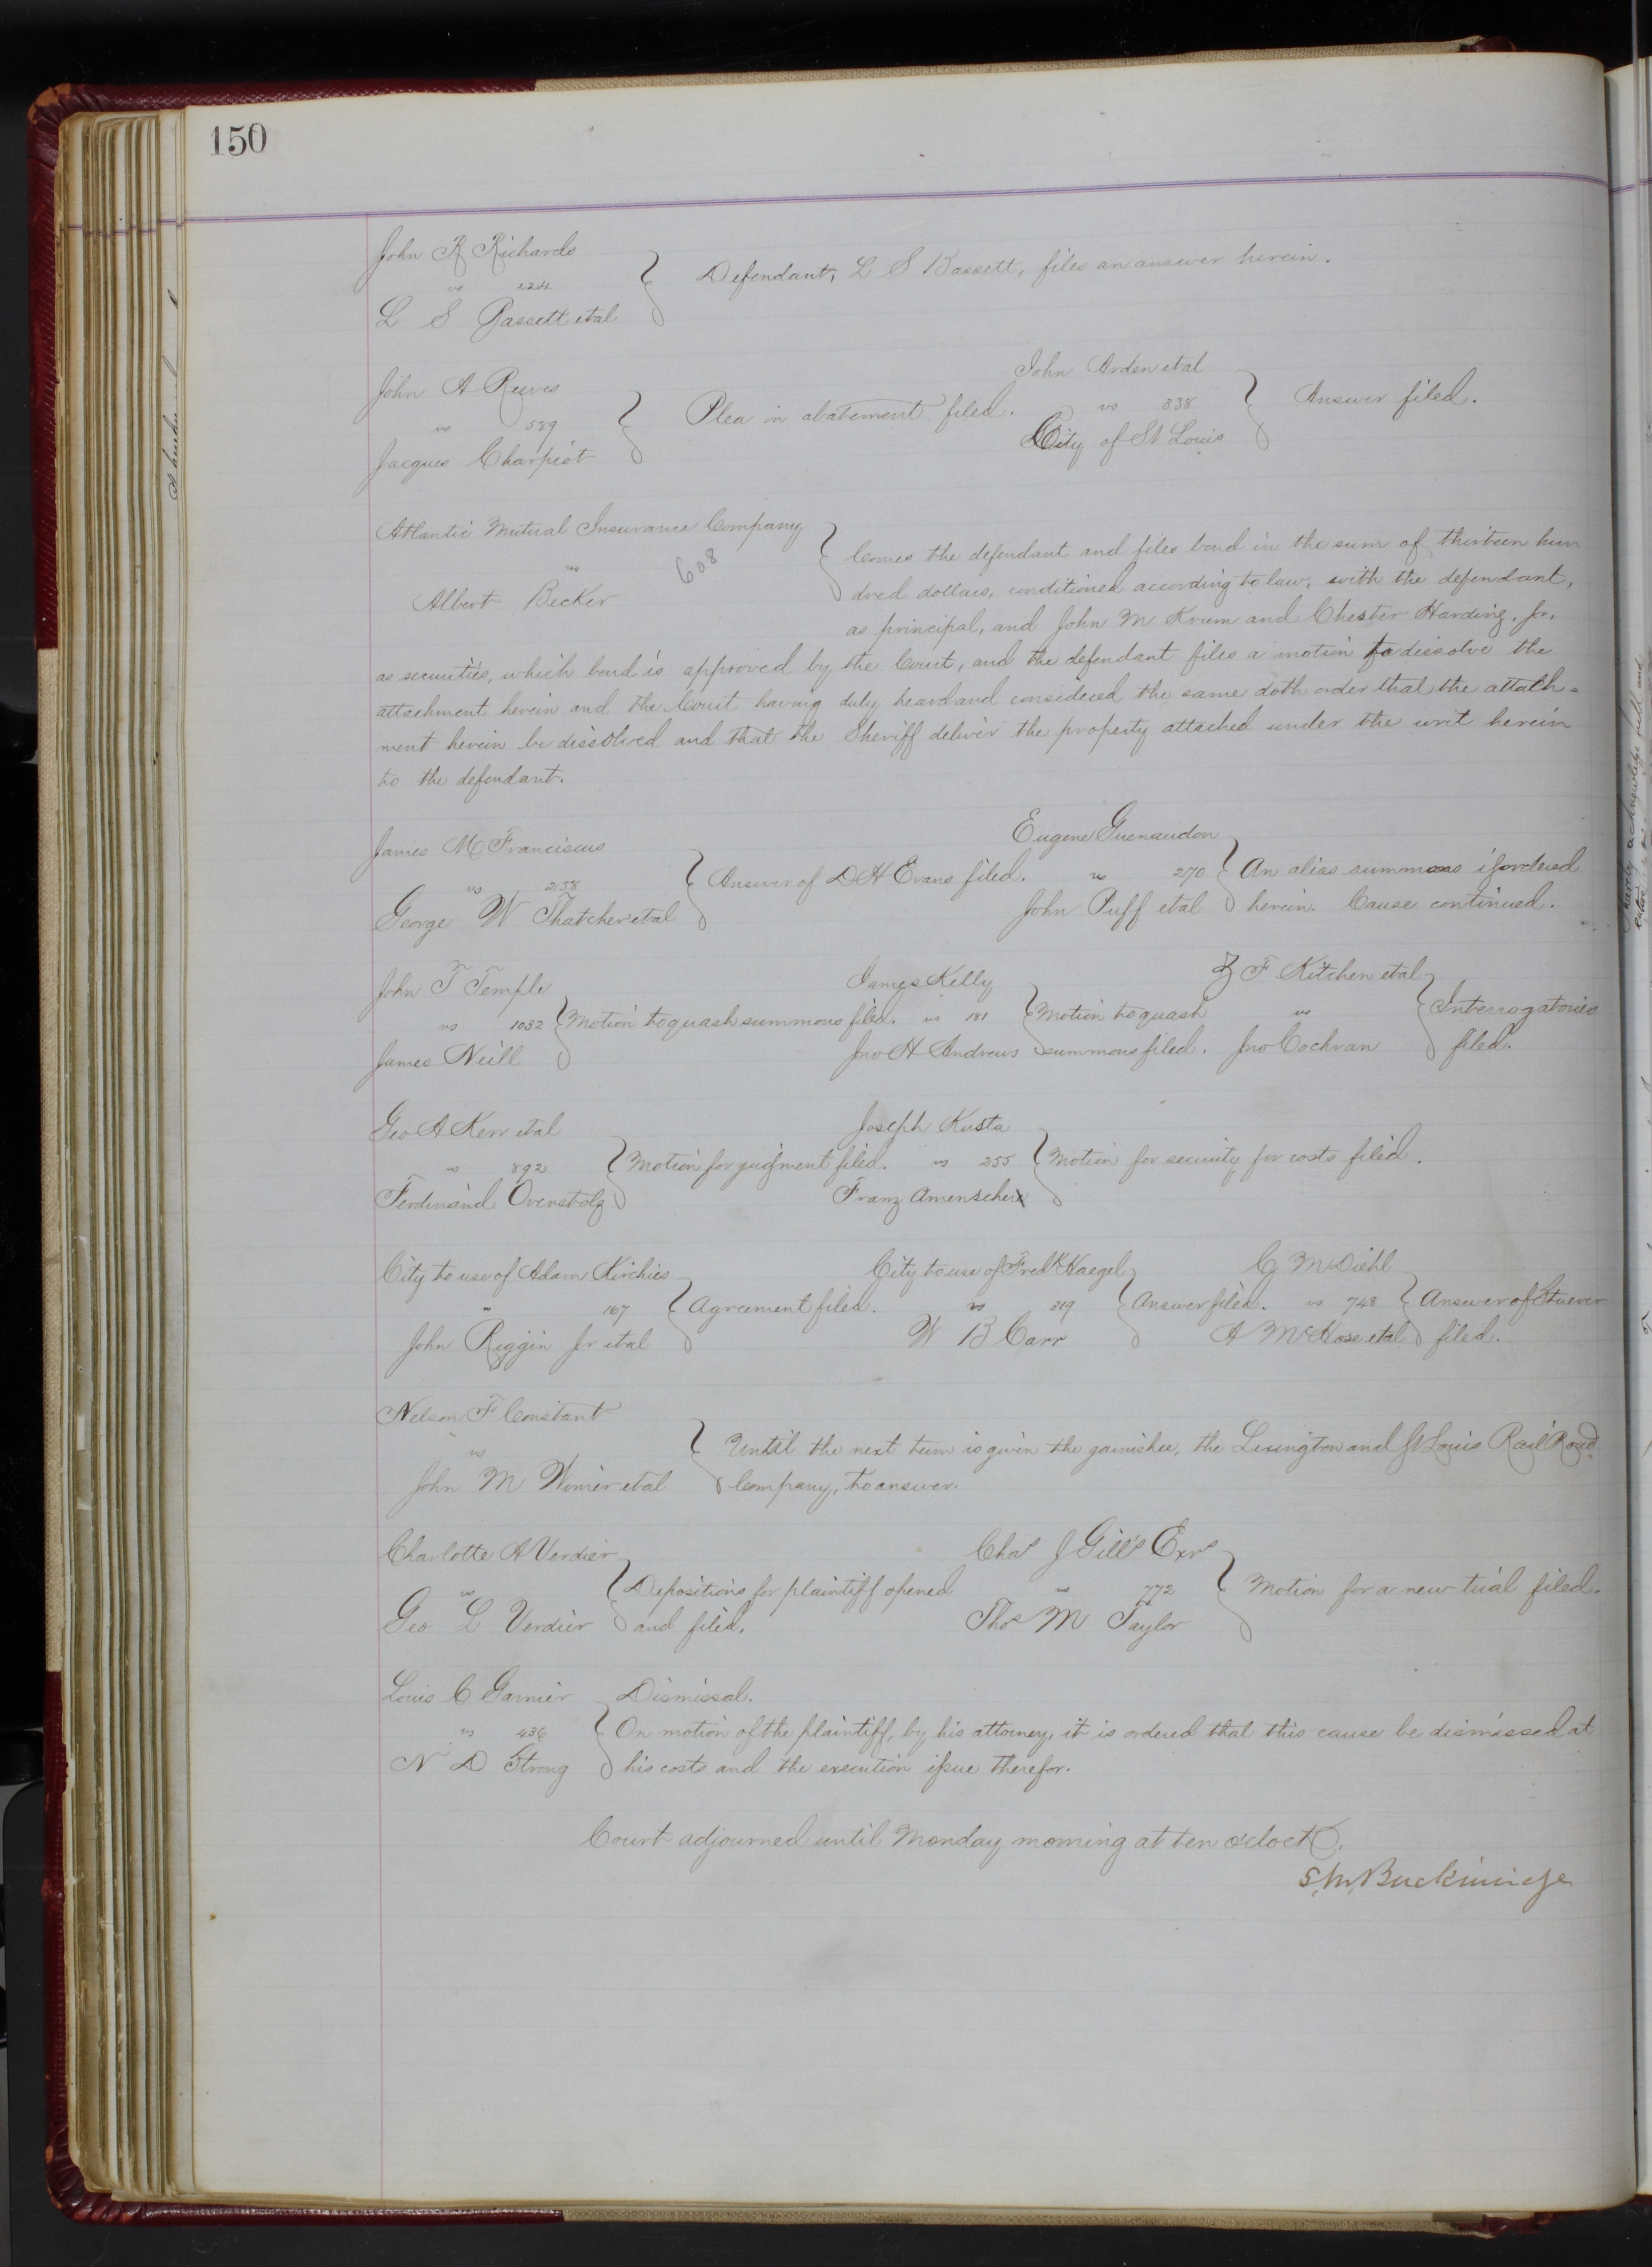 150
John R Richards
vs 224
L S Bassett etal
Defendant, L S Bassett, files an answer herein.
John A Reeves
vs 589
Jacques Charpiot
Plea in abatement filed.
John Arden etal
vs 338
City of St Louis
Answer filed.
Atlantic Mutual Insurance Company
vs 608
Albert Becker
Comes the defendant and files bond in the sum of thirteen hun
dred dollars, conditioned according to law, with the defendant,
as principal, and John M Krum and Chester Harding. Jr.
as securities, which bond is approved by the Court, and the defendant files a motion to dissolve the
attachment herein and the Court having duly heard and considered the same doth order that the attach=
ment herein be dissolved and that the Sheriff deliver the property attached under the writ herein
to the defendant.
James M Franciscus
vs 258
George W Thatcher etal
Answer of D H Evans filed.
Eugene Guenaudon
vs 270
John Puff etal
An alias summons is ordered
herein. Cause continued.
John T Temple
vs 1032
James Neill
Motion to quash summons filed.
James Kelly
vs 181
Jno H Andrews
Motion to quash
summons filed.
F Kitchen etal
vs
Jno Cochran
Interrogatories
filed.
Geo A Kerr etal
vs 892
Ferdinand Overstolz
Motion for judgment filed.
Joseph Kusta
vs 255
Franz
Motion for security for costs filed.
City to use of Adam Kirchies
" 167
John Riggin Jr etal
Agreement filed.
City to use of Fredk Kaegel
vs 319
W B Carr
Answer filed.
C McDiehl
vs 748
A McHose etal
Answer of Stuever
filed.
Nelson F Constant
vs
John M Wimer etal
Until the next term is given the garnishee, the Lexington and St Louis Rail Road
Company, to answer.
Charlotte A Verdier
vs
Geo L Verdier
Depositions for plaintiff opened
and filed.
Chas J Gill's Exrs
vs 772
Thos M Taylor
Motion for a new trial filed.
Louis C Garnier
vs 436
N D Strong
Dismissal.
On motion of the plaintiff, by his attorney, it is ordered that this cause be dismissed at
his costs and the execution issue therefor.
Court adjourned until Monday morning at ten o'clock.
S. M. Buckinridge